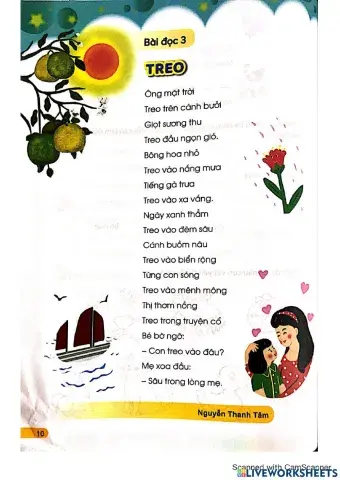 Bài đọc 3
TREO
Ông mặt trời
Treo trên cành bưởi
Giọt sương thu
Treo đầu ngọn gió.
Bông hoa nhỏ
Treo vào nắng mưa
Tiếng gà trưa
Treo vào xa vắng.
Ngày xanh thẳm
Treo vào đêm sâu
Cánh buồm nâu
Treo vào biển rộng
Từng con sóng
Treo vào mênh mông
Thị thơm nồng
Treo trong truyện cổ
Bé bỡ ngỡ:
– Con treo vào đâu?
Mẹ xoa đầu:
– Sâu trong lòng mẹ.
Nguyễn Thanh Tâm
10
Scanned with CamScanner
LIVEWORKSHEETS